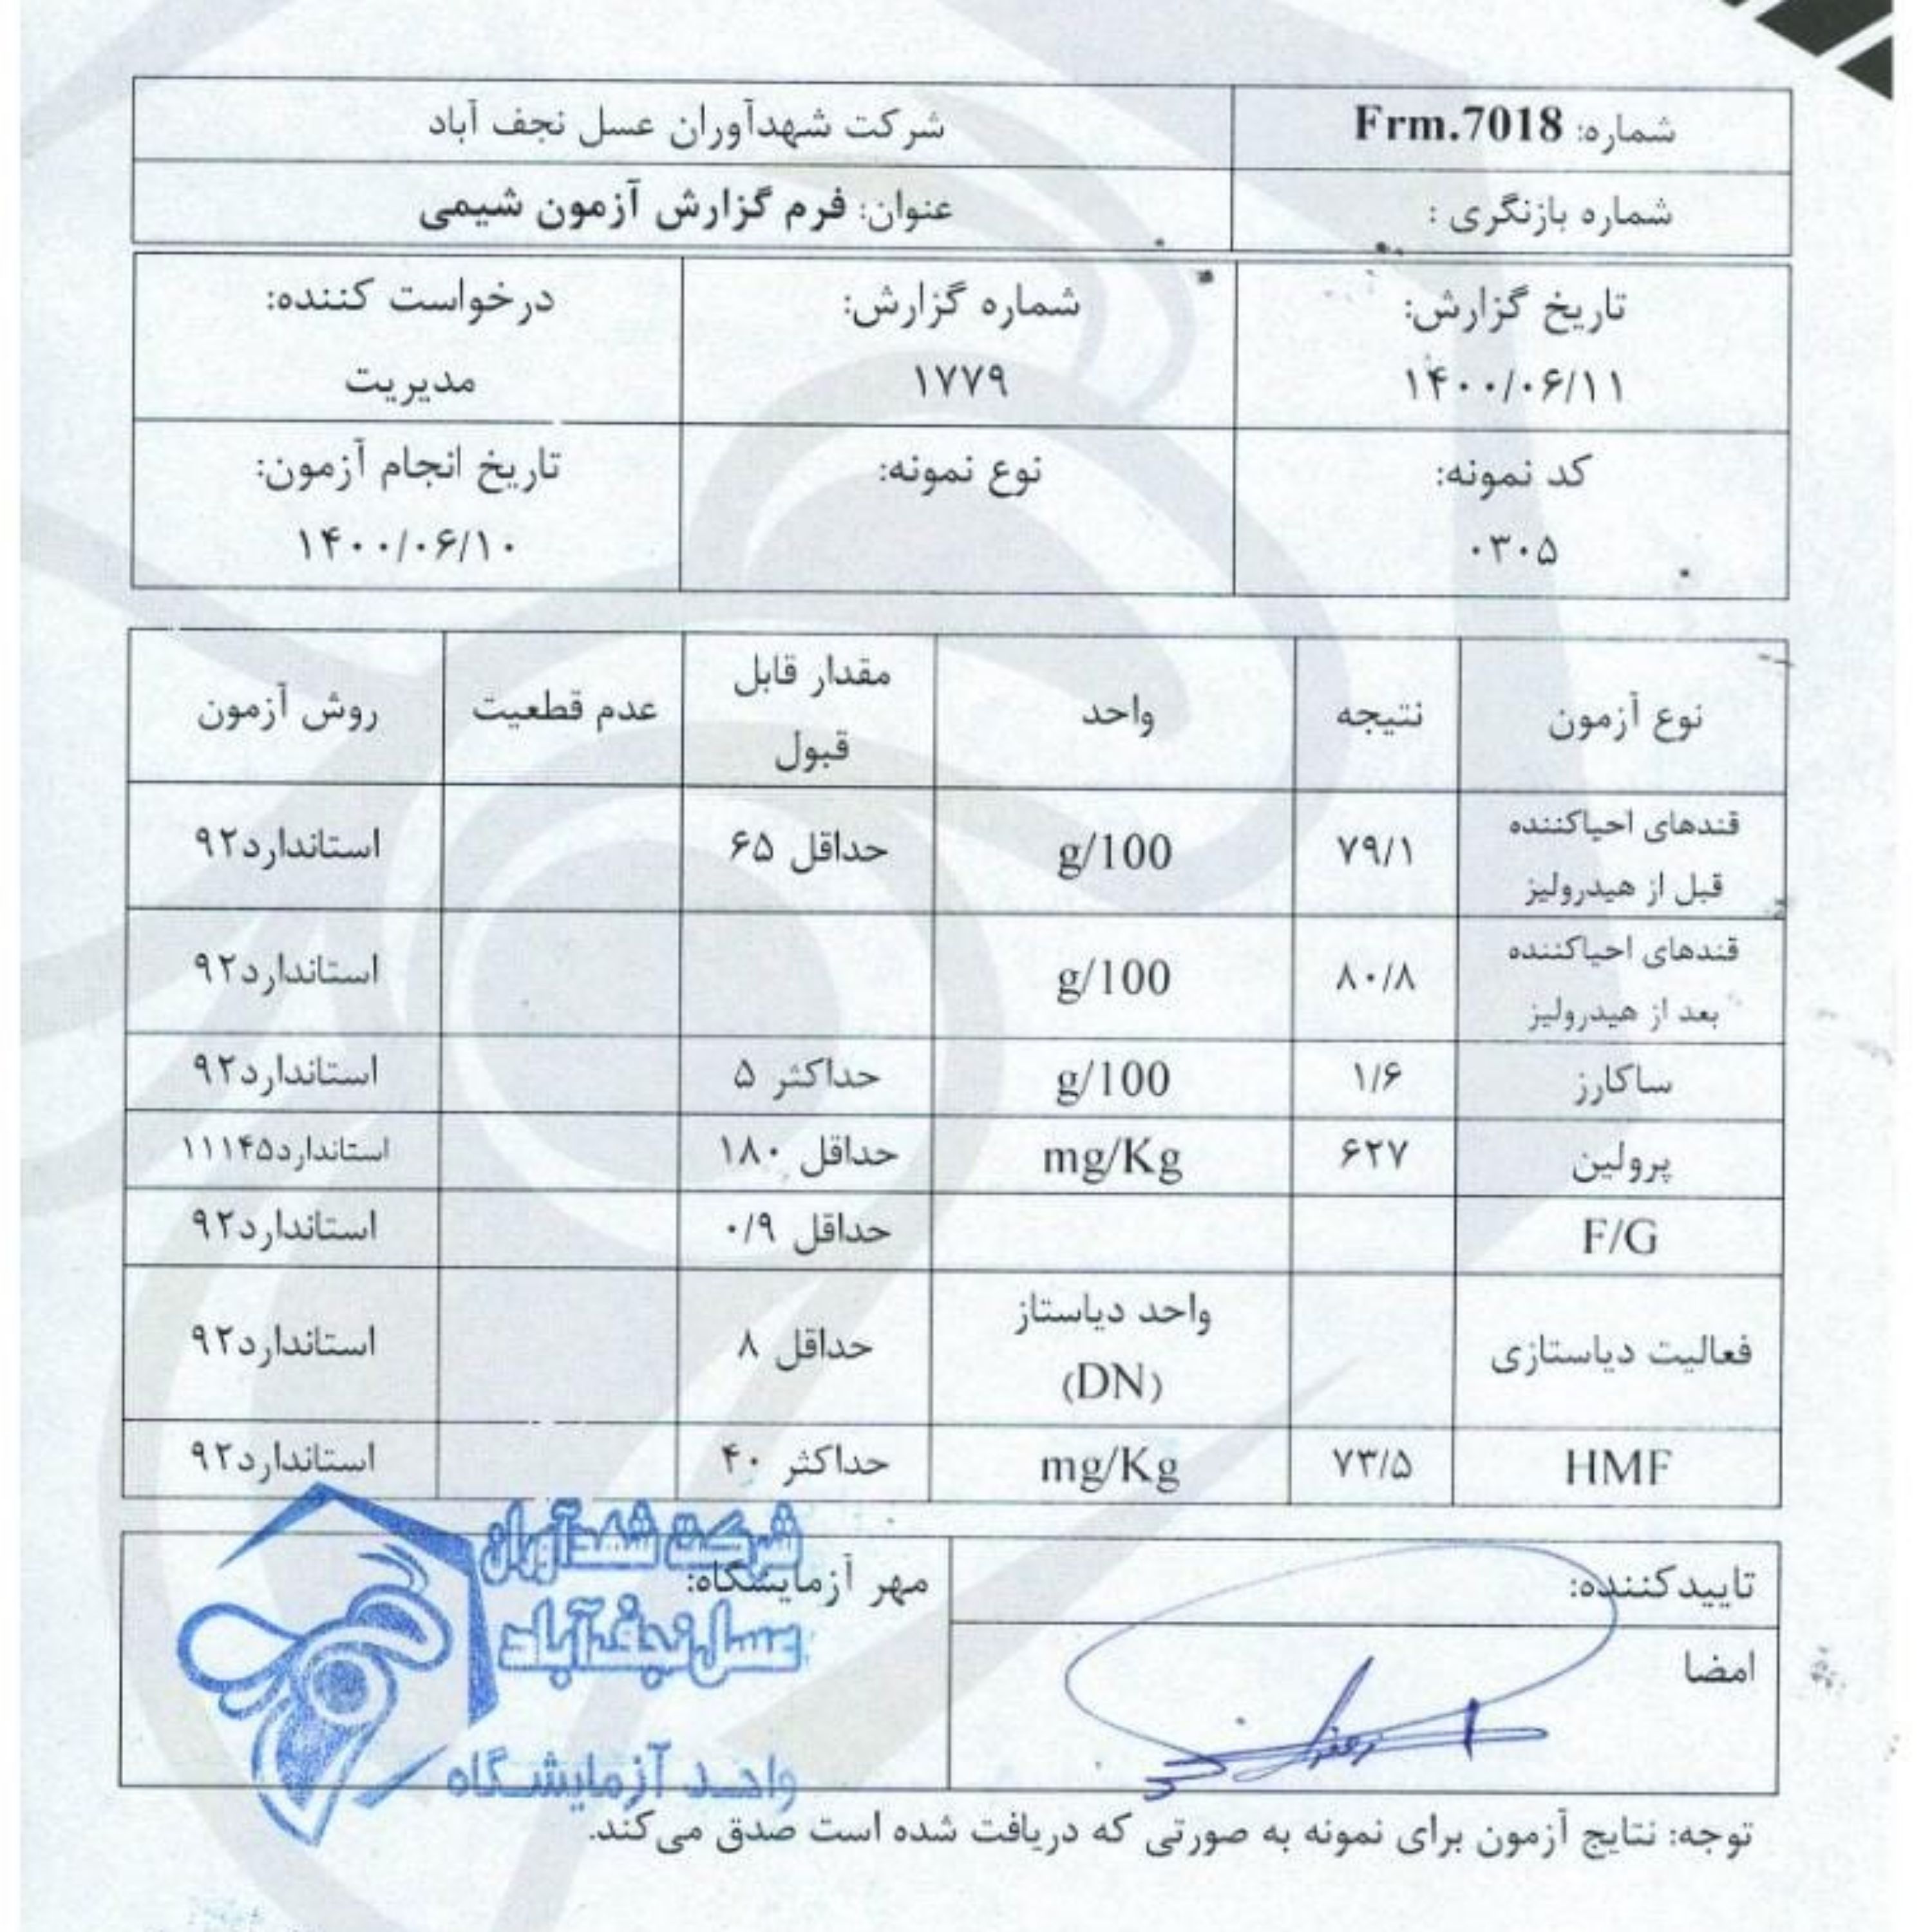 شرکت شهدآوران عسل نجف آباد
شماره: Frm.7018
عنوان: فرم گزارش آزمون شیمی
شماره بازنگری :
تاریخ گزارش:
۱۴۰۰/۰۶/۱۱
شماره گزارش:
۱۷۷۹
درخواست کننده:
مدیریت
کد نمونه:
۰۳۰۵
نوع نمونه:
تاریخ انجام آزمون:
۱۴۰۰/۰۶/۱۰
نوع آزمون نتیجه واحد مقدار قابل قبول عدم قطعیت روش آزمون
قندهای احیاکننده
قبل از هیدرولیز
۷۹/۱ g/100 حداقل ۶۵ استاندارد۹۲
قندهای احیاکننده
بعد از هیدرولیز
۸۰/۸ g/100 استاندارد۹۲
ساکارز ۱/۶ g/100 حداکثر ۵ استاندارد۹۲
پرولین ۶۲۷ mg/Kg حداقل ۱۸۰ استاندارد۱۱۱۴۵
F/G حداقل ۰/۹ استاندارد۹۲
فعالیت دیاستازی واحد دیاستاز (DN) حداقل ۸ استاندارد۹۲
HMF ۷۳/۵ mg/Kg حداکثر ۴۰ استاندارد۹۲
تاییدکننده:
امضا
مهر آزمایشگاه:
شرکت شهدآوران
عسل نجف آباد
واحد آزمایشگاه
توجه: نتایج آزمون برای نمونه به صورتی که دریافت شده است صدق می‌کند.